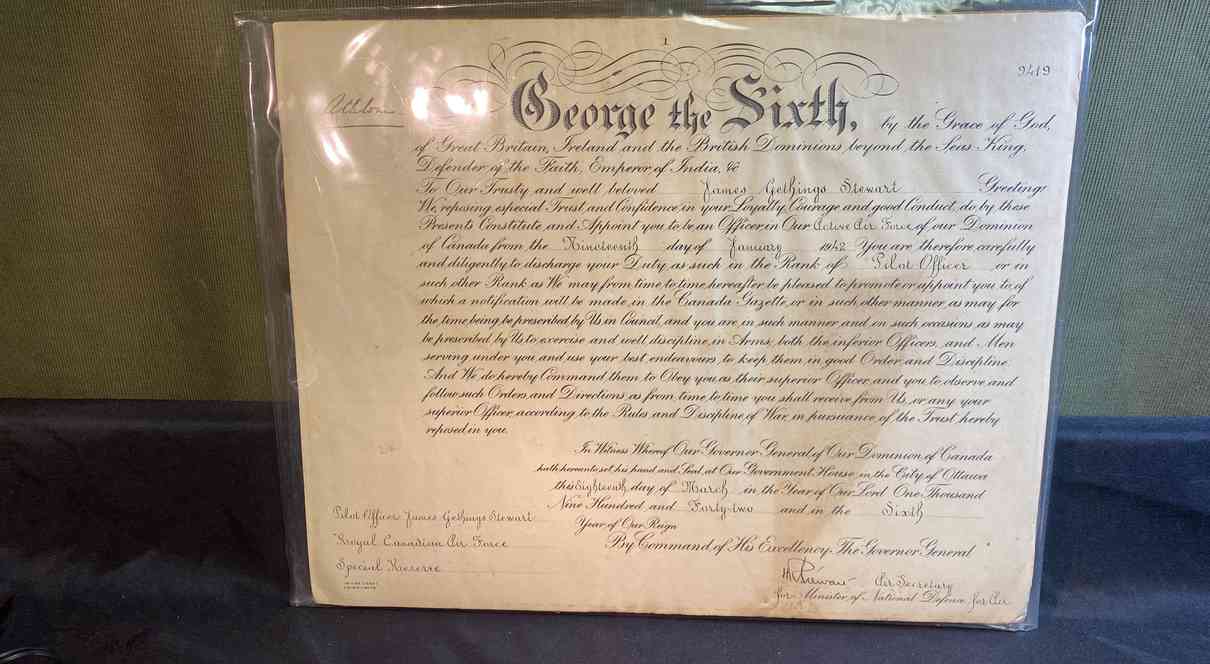 1
9419
Athlone
George the Sixth, by the Grace of God,
of Great Britain, Ireland and the British Dominions beyond the Seas King,
Defender of the Faith, Emperor of India, &c
To Our Trusty and well beloved James Gethings Stewart Greeting:
We, reposing especial Trust and Confidence in your Loyalty, Courage and good Conduct, do by these
Presents Constitute and Appoint you to be an Officer in Our Active Air Force of our Dominion
of Canada from the Nineteenth day of January 1942 You are therefore carefully
and diligently to discharge your Duty as such in the Rank of Pilot Officer or in
such other Rank as We may from time to time hereafter be pleased to promote or appoint you to, of
which a notification will be made in the Canada Gazette, or in such other manner, as may for
the time being be prescribed by Us in Council, and you are in such manner and on such occasions as may
be prescribed by Us to exercise and well discipline in Arms, both the inferior Officers and Men
serving under you and use your best endeavours to keep them in good Order and Discipline.
And We do hereby Command them to Obey you as their superior Officer, and you to observe and
follow such Orders and Directions as from time to time you shall receive from Us, or any your
superior Officer, according to the Rules and Discipline of War, in pursuance of the Trust hereby
reposed in you.
In Witness Whereof Our Governor General of Our Dominion of Canada
hath hereunto set his hand and Seal, at Our Government House, in the City of Ottawa
this Eighteenth day of March in the Year of Our Lord One Thousand
Nine Hundred and Forty-two and in the Sixth
Year of Our Reign
By Command of His Excellency The Governor General
Pilot Officer James Gethings Stewart
Royal Canadian Air Force
Special Reserve
Air Secretary
for Minister of National Defence for Air